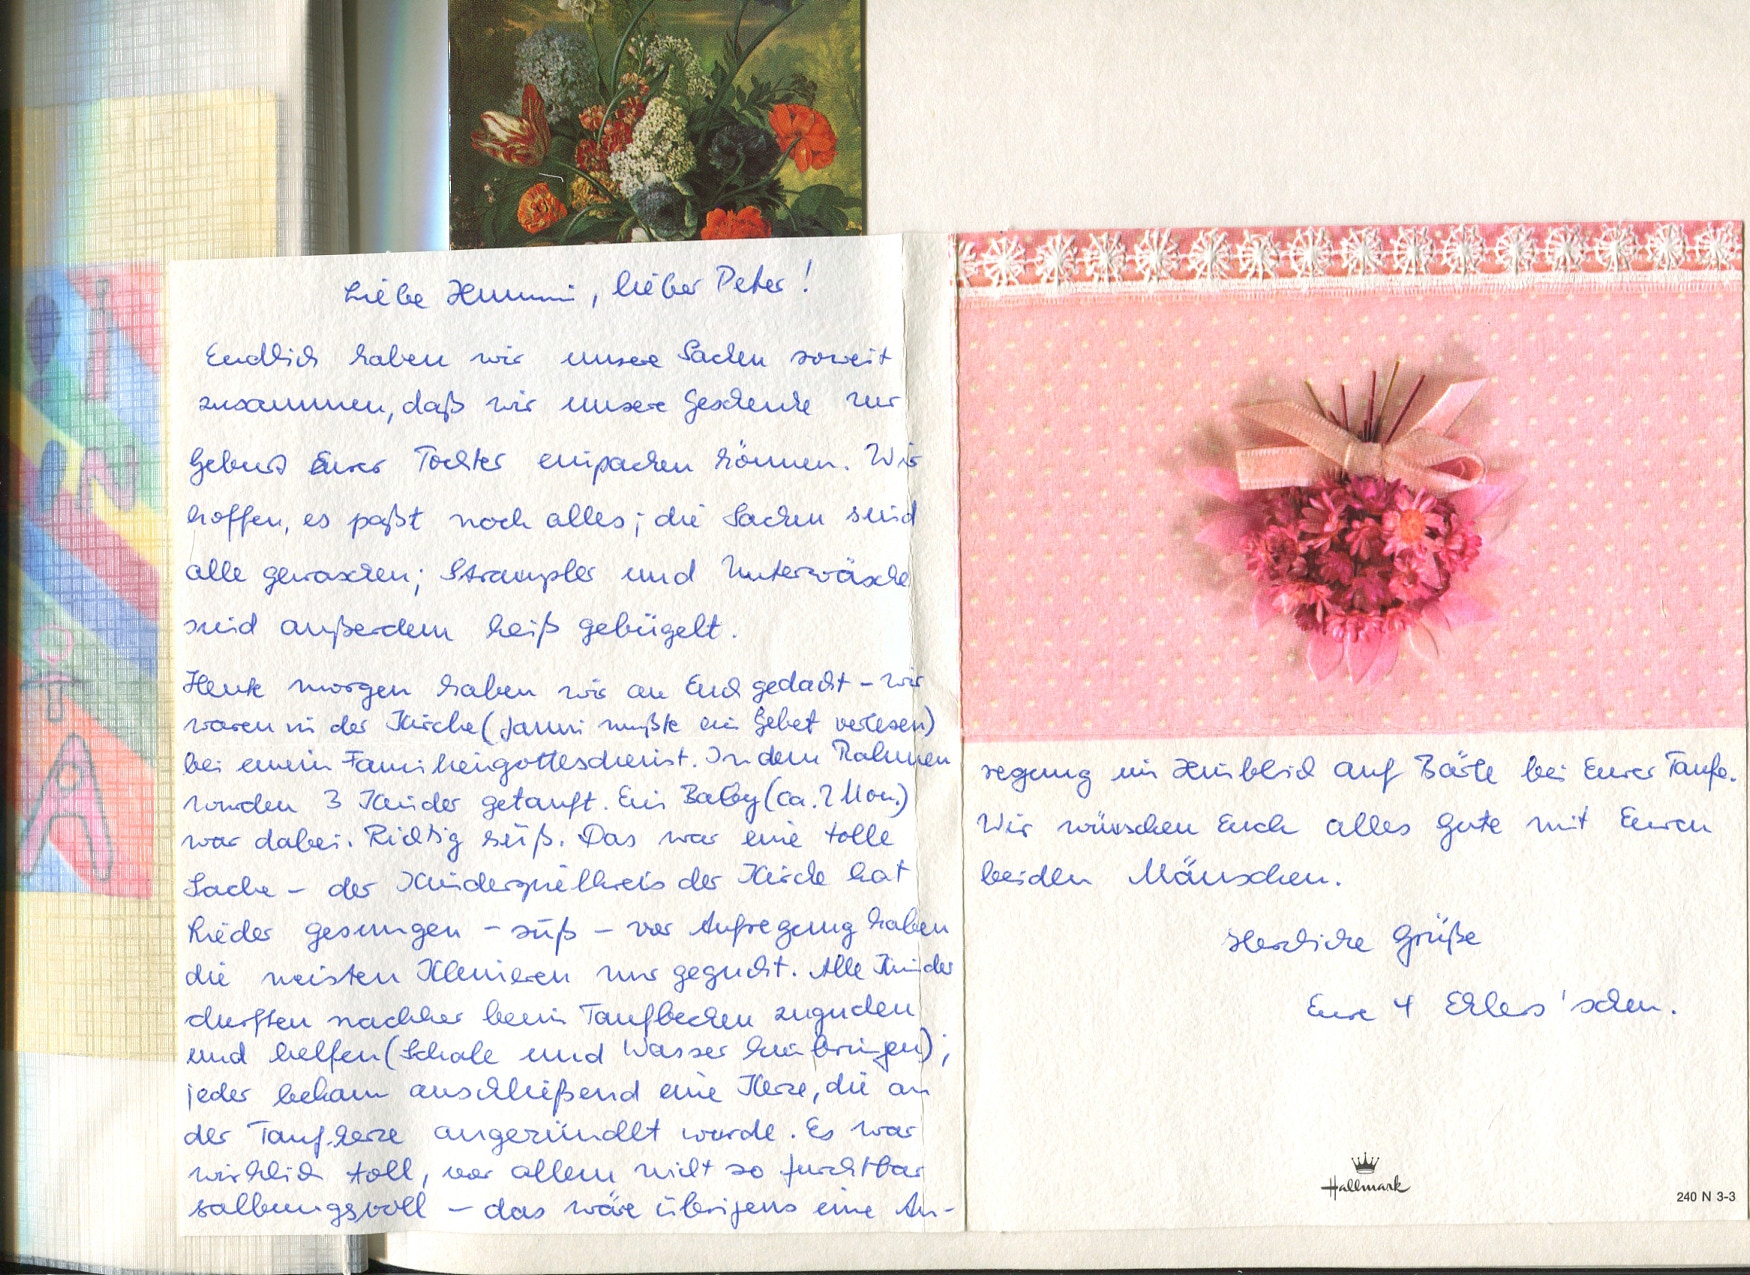 Liebe Hummi, lieber Peter!
Endlich haben wir unsere Sachen soweit
zusammen, daß wir unsere Geschenke zur
Geburt Eurer Tochter einpacken können. Wir
hoffen, es paßt noch alles; die Sachen sind
alle gewaschen; Strampler und Unterwäsche
sind außerdem heiß gebügelt.
Heute morgen haben wir an Euch gedacht – wir
waren in der Kirche (Janni mußte ein Gebet verlesen)
bei einem Familiengottesdienst. In dem Rahmen
wurden 3 Kinder getauft. Ein Baby (ca. 2 Mon.)
war dabei. Richtig süß. Das war eine tolle
Sache – der Kinderspielkreis der Kirche hat
Lieder gesungen – süß – vor Aufregung haben
die meisten Kleineren nur geguckt. Alle Kinder
durften nachher beim Taufbecken zugucken
und helfen (Schale und Wasser hinbringen);
jeder bekam anschließend eine Kerze, die an
der Taufkerze angezündet wurde. Es war
wirklich toll, vor allem nicht so furchtbar
salbungsvoll – das wäre übrigens eine An-
regung im Hinblick auf Bärte bei Eurer Taufe.
Wir wünschen Euch alles Gute mit Euren
beiden Mäuschen.
Herzliche Grüße
Eure 4 Ehlers'schen.
Hallmark
240 N 3-3